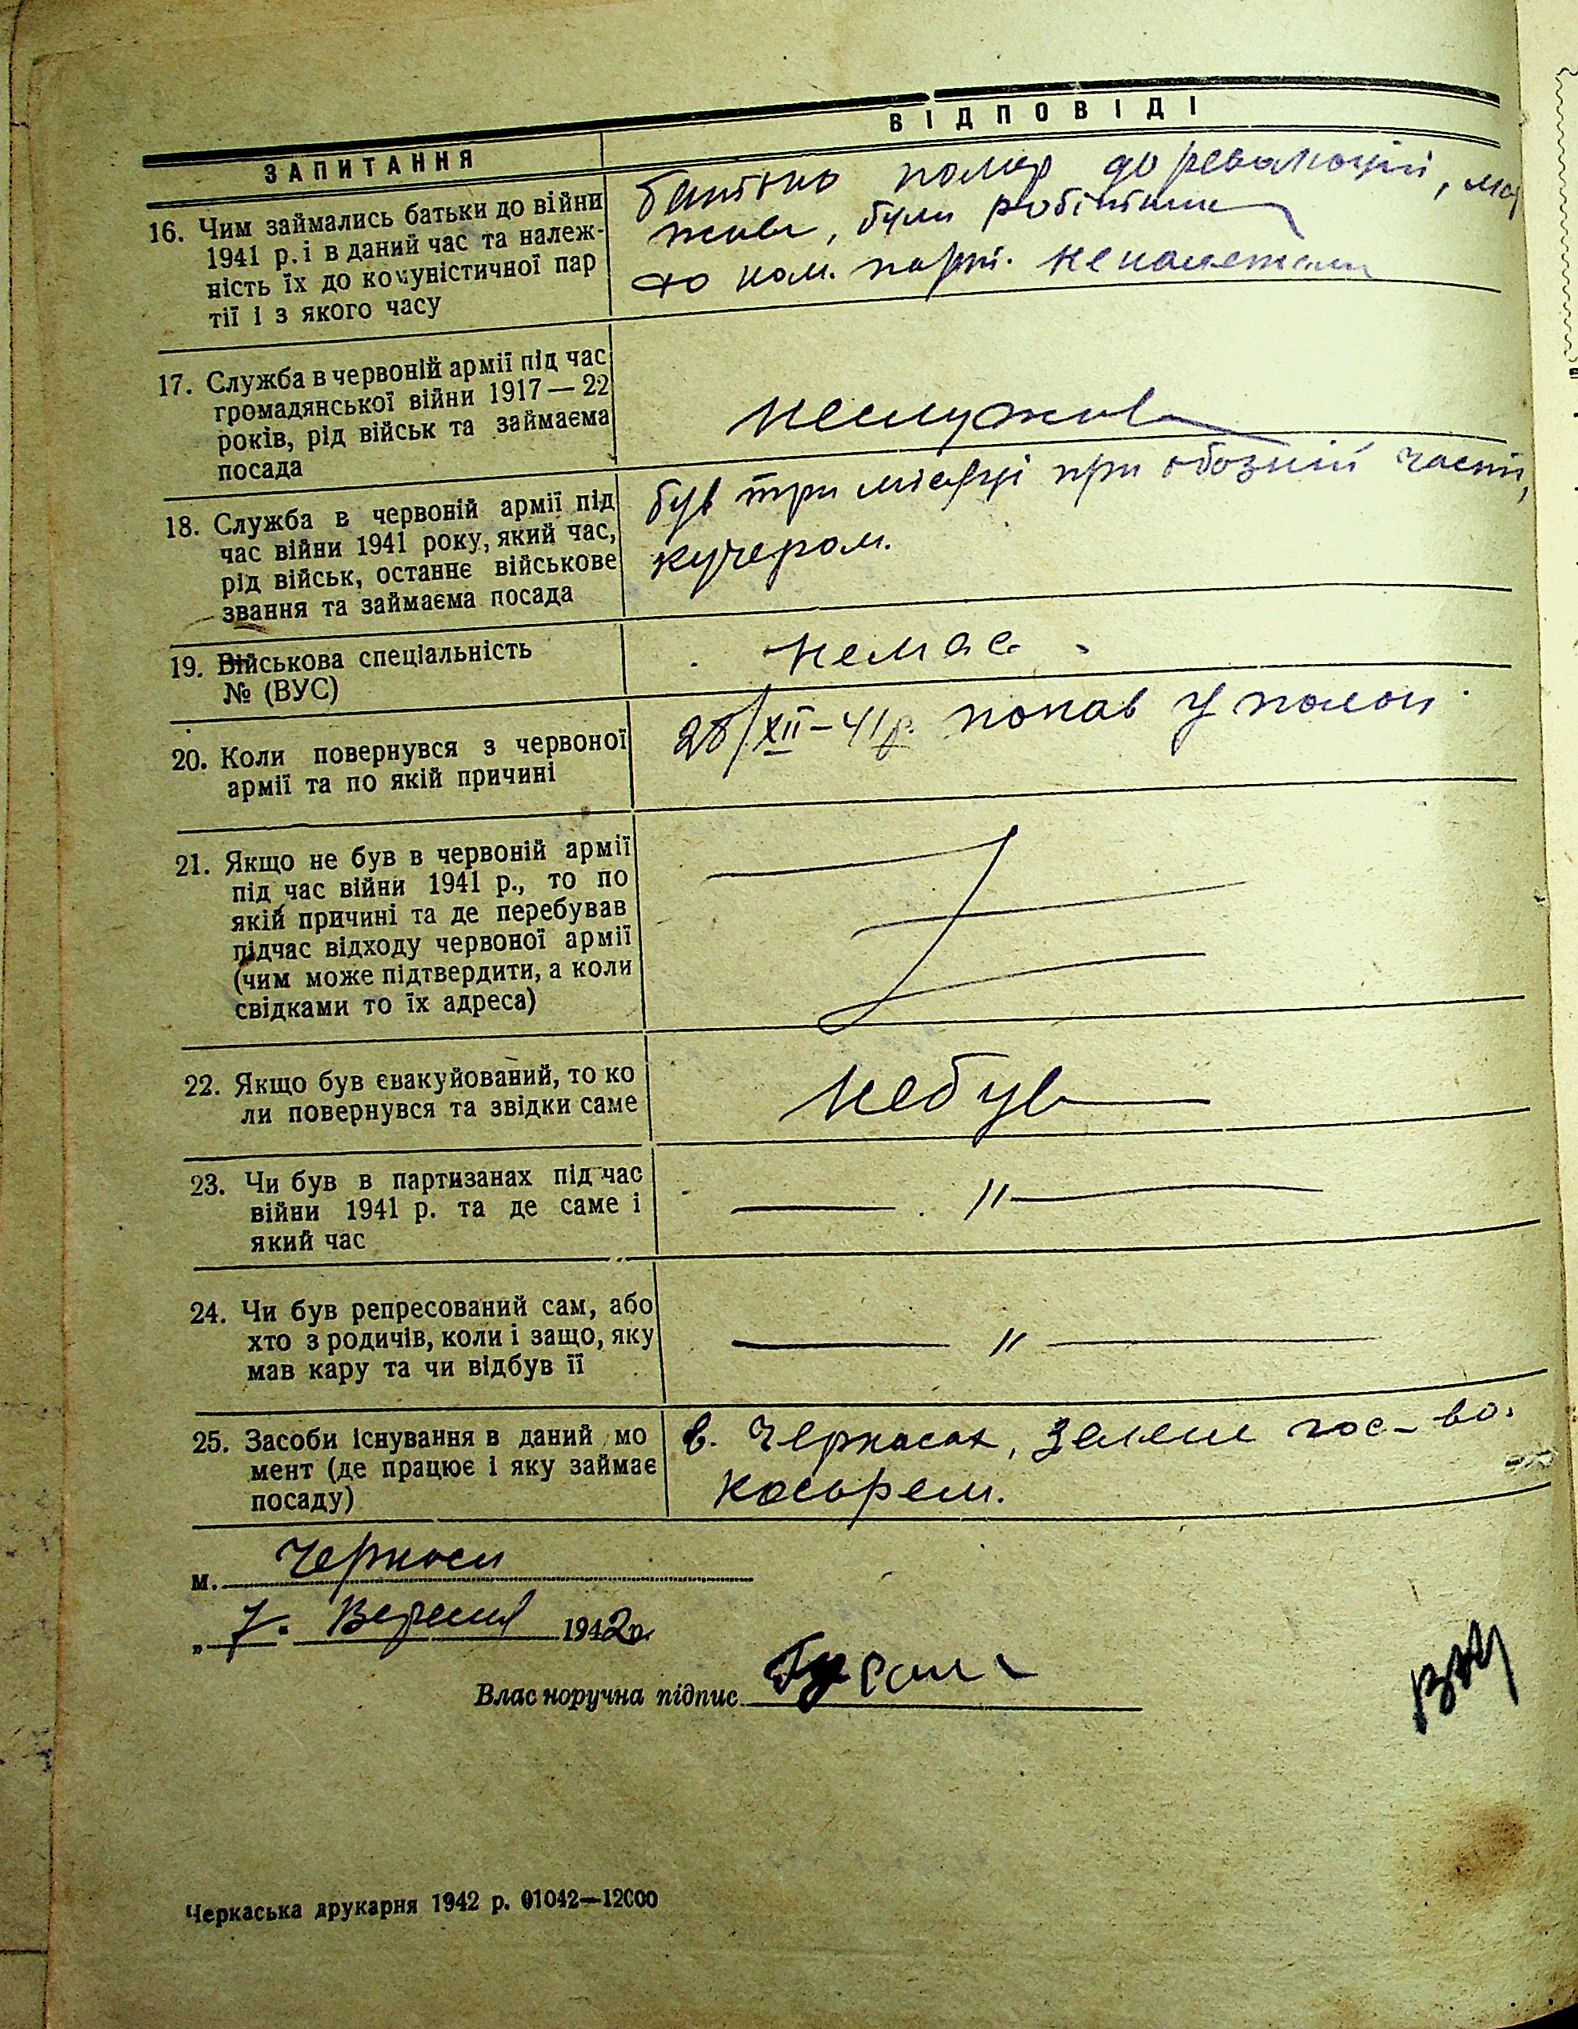 ЗАПИТАННЯ
ВІДПОВІДІ
16. Чим займались батьки до війни
1941 р. і в даний час та належ-
ність їх до комуністичної пар
тії і з якого часу
батько помер до революції, ма
жива, були робітники
до ком. парт. неналежали
17. Служба в червоній армії під час
громадянської війни 1917—22
років, рід військ та займаєма
посада
неслужив
18. Служба в червоній армії під
час війни 1941 року, який час,
рід військ, останнє військове
звання та займаєма посада
був три місяці при обозній часті,
кучером.
19. Військова спеціальність
№ (ВУС)
немає
20. Коли повернувся з червоної
армії та по якій причині
28/XII–41р. попав у полон
21. Якщо не був в червоній армії
під час війни 1941 р., то по
якій причині та де перебував
підчас відходу червоної армії
(чим може підтвердити, а коли
свідками то їх адреса)
22. Якщо був євакуйований, то ко
ли повернувся та звідки саме
небув
23. Чи був в партизанах під час
війни 1941 р. та де саме і
який час
— „ —
24. Чи був репресований сам, або
хто з родичів, коли і защо, яку
мав кару та чи відбув її
— „ —
25. Засоби існування в даний мо
мент (де працює і яку займає
посаду)
в. Черкасах, Зелене гос-во.
косарем.
м. Черкаси
„ 7. Вересня 1942р.
Власноручна підпис
Черкаська друкарня 1942 р. 01042—12000